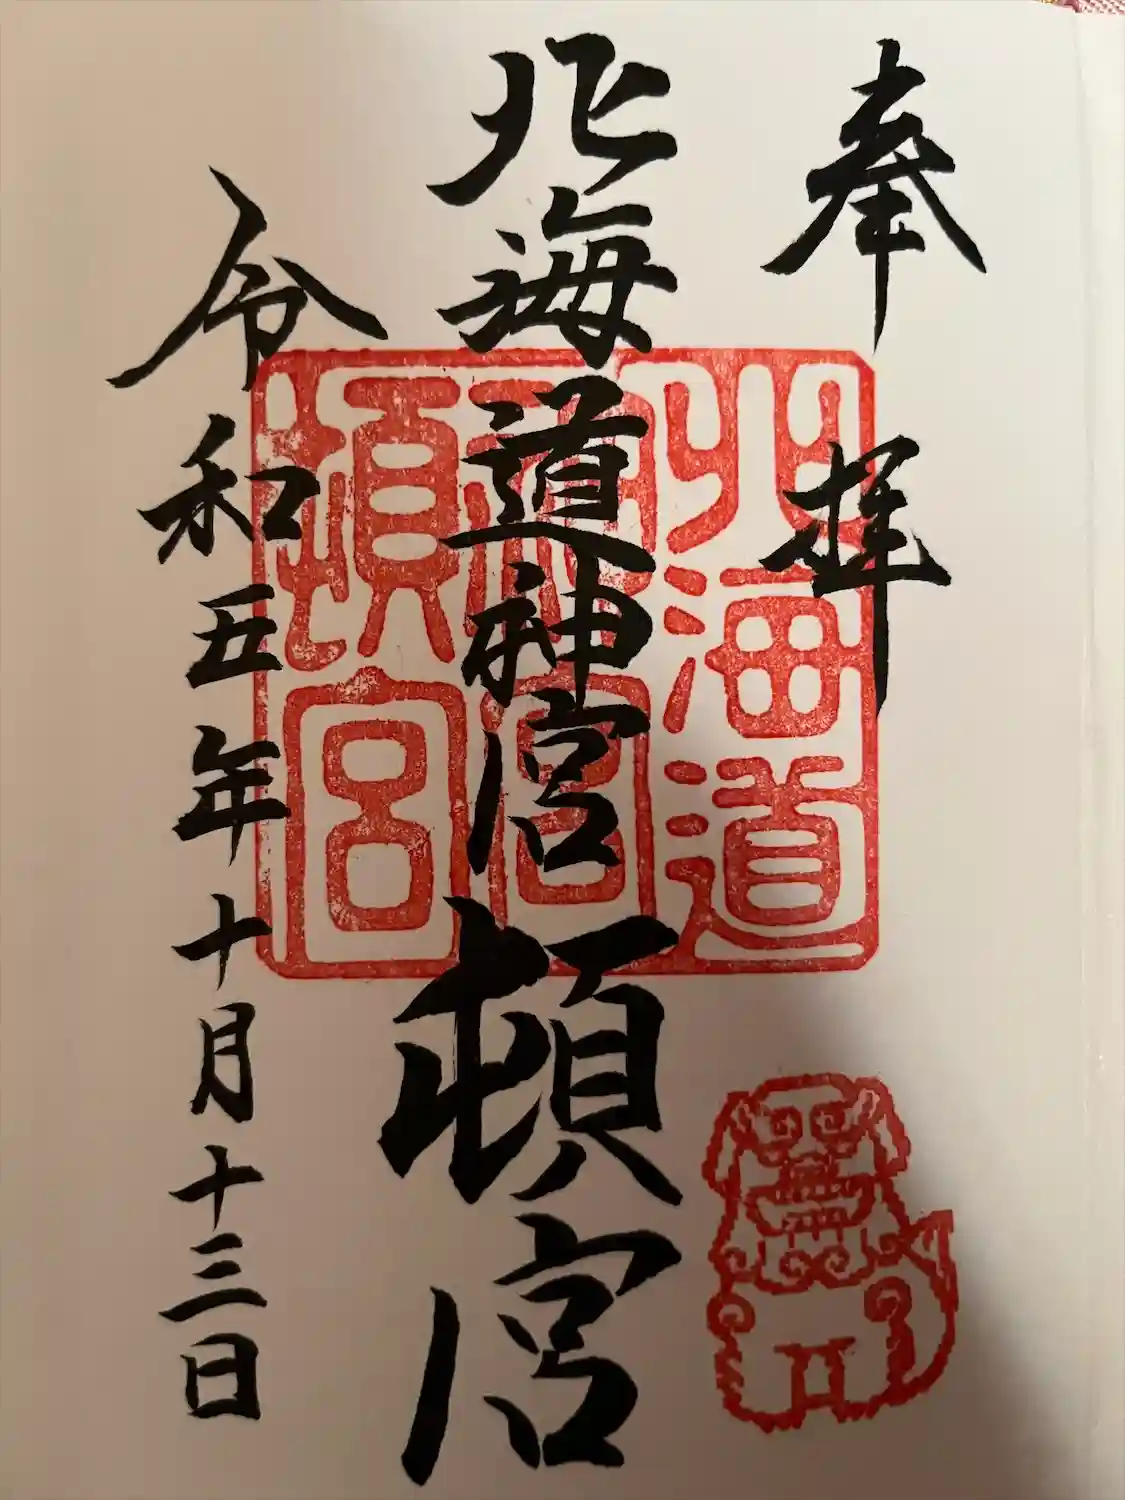 奉拝
北海道神宮頓宮
令和五年十月十三日
北海道
神宮
頓宮